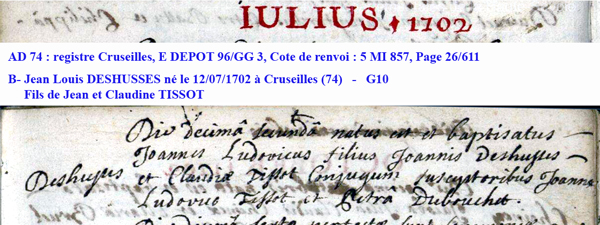 IULIUS, 1702
AD 74 : registre Cruseilles, E DEPOT 96/GG 3, Cote de renvoi : 5 MI 857, Page 26/611
B- Jean Louis DESHUSSES né le 12/07/1702 à Cruseilles (74) - G10
Fils de Jean et Claudine TISSOT
Die decimâ secundâ natus est et baptisatus
Joannes Ludovicus filius Joannis Deshusses
Deshusses et Claudiæ Tissot Conjugum susceptoribus Joanne
Ludovico Tissot et Petrâ Dubouchet.